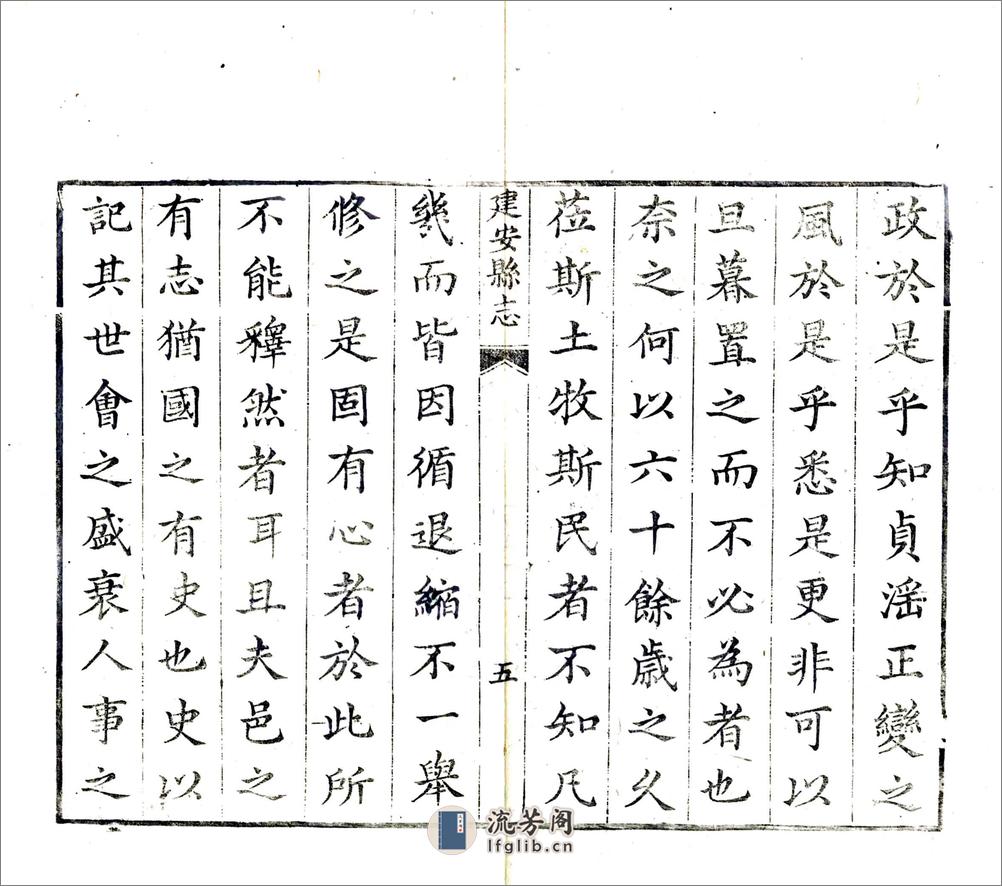 政於是乎知貞淫正變之
風於是乎悉是更非可以
旦暮置之而不必為者也
柰之何以六十餘歲之久
莅斯土牧斯民者不知凡
建安縣志
五
幾而皆因循退縮不一舉
修之是固有心者於此所
不能釋然者耳且夫邑之
有志猶國之有史也史以
記其世會之盛衰人事之
流芳阁
lfglib.cn